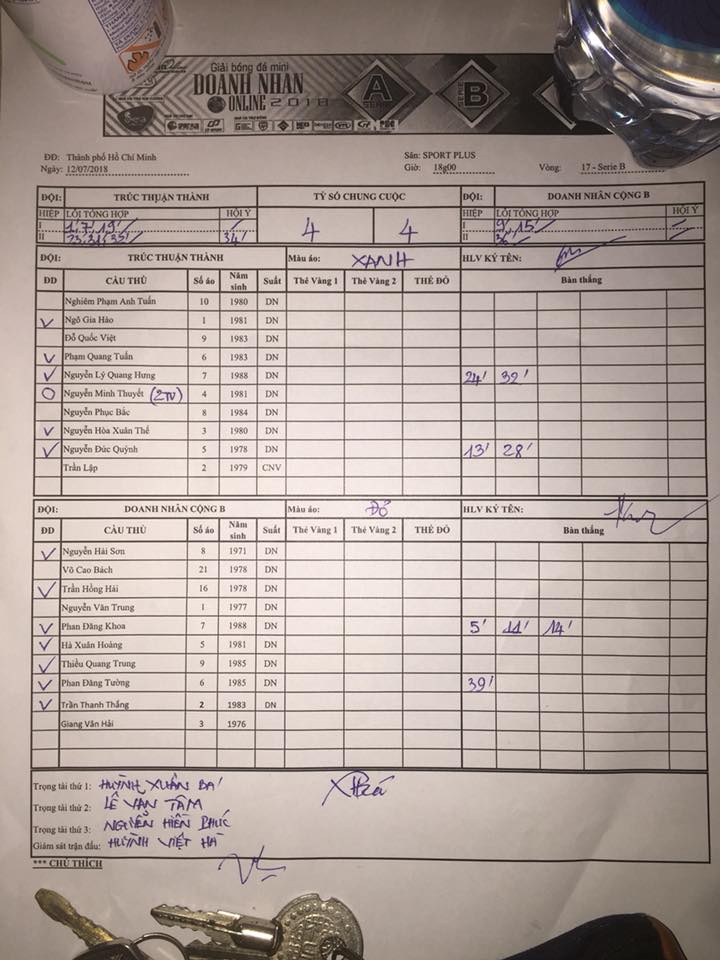 Giải bóng đá mini
DOANH NHAN
ONLINE 2018
SERIE A SERIE B
ĐD: Thành phố Hồ Chí Minh Sân: SPORT PLUS
Ngày: 12/07/2018 Giờ: 18g00 Vòng: 17 - Serie B
ĐỘI: TRÚC THUẬN THÀNH TỶ SỐ CHUNG CUỘC ĐỘI: DOANH NHÂN CỘNG B
HIỆP LỖI TỔNG HỢP HỘI Ý 4 4 HIỆP LỖI TỔNG HỢP HỘI Ý
I 1' 7' 19' I 9' 15'
II 34' II
ĐỘI: TRÚC THUẬN THÀNH Màu áo: XANH HLV KÝ TÊN:
ĐD CẦU THỦ Số áo Năm sinh Suất Thẻ Vàng 1 Thẻ Vàng 2 THẺ ĐỎ Bàn thắng
Nghiêm Phạm Anh Tuấn 10 1980 DN
Ngô Gia Hào 1 1981 DN
Đỗ Quốc Việt 9 1983 DN
Phạm Quang Tuấn 6 1983 DN
Nguyễn Lý Quang Hưng 7 1988 DN 24' 32'
Nguyễn Minh Thuyết (2TV) 4 1981 DN
Nguyễn Phục Bắc 8 1984 DN
Nguyễn Hòa Xuân Thế 3 1980 DN
Nguyễn Đức Quỳnh 5 1978 DN 13' 28'
Trần Lập 2 1979 CNV
ĐỘI: DOANH NHÂN CỘNG B Màu áo: ĐỎ HLV KÝ TÊN:
ĐD CẦU THỦ Số áo Năm sinh Suất Thẻ Vàng 1 Thẻ Vàng 2 THẺ ĐỎ Bàn thắng
Nguyễn Hải Sơn 8 1971 DN
Võ Cao Bách 21 1978 DN
Trần Hồng Hải 16 1978 DN
Nguyễn Văn Trung 1 1977 DN
Phan Đăng Khoa 7 1988 DN 5' 11' 14'
Hà Xuân Hoàng 5 1981 DN
Thiều Quang Trung 9 1985 DN
Phan Đăng Tường 6 1985 DN 39'
Trần Thanh Thắng 2 1983 DN
Giang Văn Hải 3 1976
Trọng tài thứ 1: HUỲNH XUÂN BÁ
Trọng tài thứ 2: LÊ VĂN TÂM
Trọng tài thứ 3: NGUYỄN HIỀN PHÚC
Giám sát trận đấu: HUỲNH VIỆT HÀ
*** CHÚ THÍCH